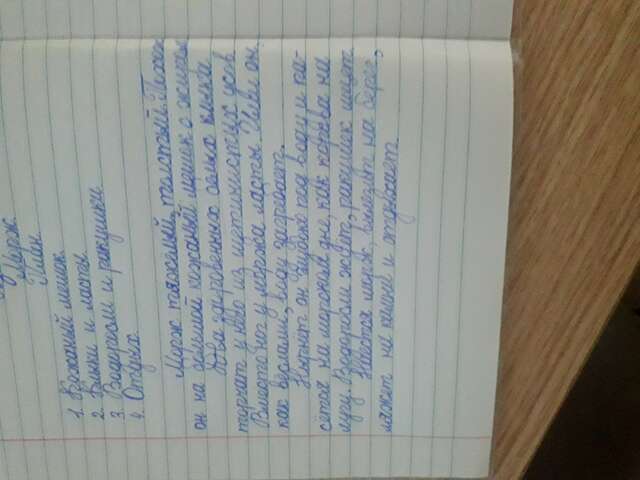 Морж
План
1. Кожаный мешок
2. Клыки и ласты
3. Водоросли и ракушки
4. Отдых.
Морж тяжёлый толстый. Похож
он на большой кожаный мешок с жиром
Два здоровенных белых клыка
торчат у него из щетинистых усов
Вместо ног у моржа ласты. Ими он
как вёслами, воду загребает.
Нырнёт он глубоко под воду и па-
сётся на морском дне, как корова на
лугу. Водоросли жуёт, ракушки ищет
Наестся морж, вылезет на берег,
ляжет на камни и отдыхает.